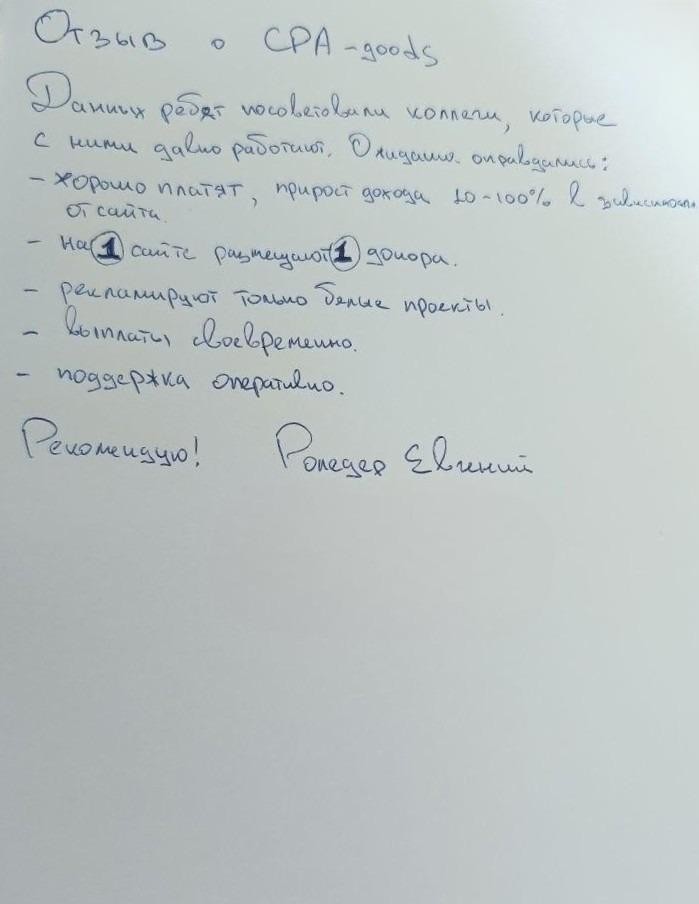 Отзыв о CPA-goods
Данных ребят посоветовали коллеги, которые
с ними давно работают. Ожидания оправдались:
- хорошо платят, прирост дохода 10-100% в зависимости
от сайта.
- На 1 сайте размещают 1 донора.
- рекламируют только белые проекты.
- выплаты своевременно.
- поддержка оперативно.
Рекомендую! Евгений